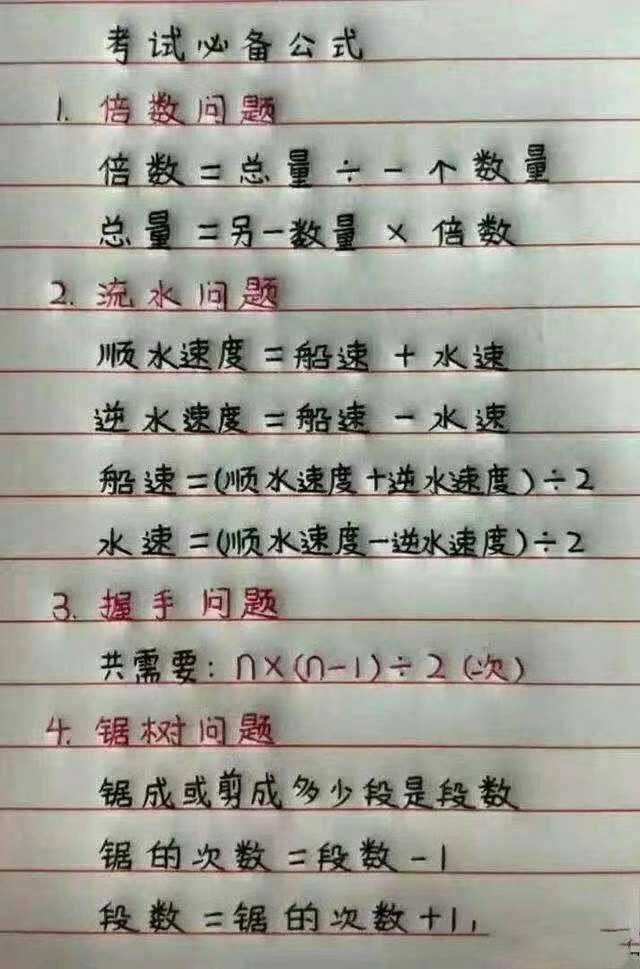 考试必备公式
1. 倍数问题
倍数=总量÷一个数量
总量=另一数量×倍数
2. 流水问题
顺水速度=船速+水速
逆水速度=船速-水速
船速=(顺水速度+逆水速度)÷2
水速=(顺水速度-逆水速度)÷2
3. 握手问题
共需要: n×(n-1)÷2(次)
4. 锯树问题
锯成或剪成多少段是段数
锯的次数=段数-1
段数=锯的次数+1,